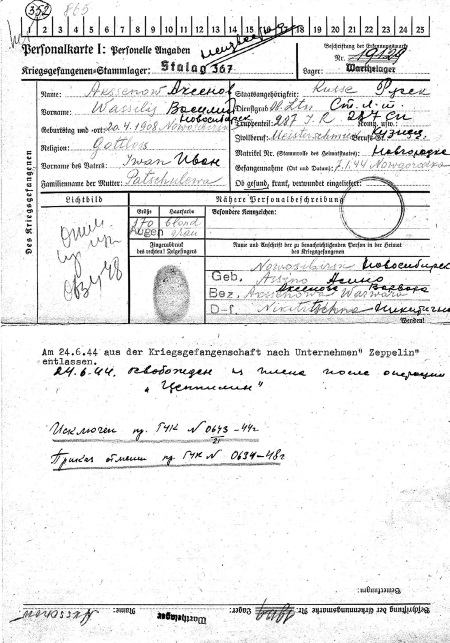 352 865
1 2 3 4 5 6 7 8 9 10 11 12 13 14 15 16 17 18 19 20 21 22 23 24 25
Personalkarte I: Personelle Angaben
Beschriftung der Erkennungsmarke
Kriegsgefangenen-Stammlager: Stalag 367
Nr. 19129
Lager: Warthelager
Des Kriegsgefangenen
Name: Akssenow Аксенов
Staatsangehörigkeit: Russe Русск
Vorname: Wassilij Василий
Dienstgrad: U.Ltn Ст. Л-т
Новосибирск
Truppenteil: 287 J.R 287 СП Komp. usw.:
Geburtstag und -ort: 20.4.1908
Zivilberuf: Кузнец Berufs-Gr.:
Religion: Gottlos
Matrikel Nr. (Stammrolle des Heimatstaates):
Vorname des Vaters: Iwan Иван
Gefangennahme (Ort und Datum): 7.1.44
Familienname der Mutter:
Ob gesund, krank, verwundet eingeliefert:
Lichtbild
Nähere Personalbeschreibung
Größe Haarfarbe
Besondere Kennzeichen:
170 blond
Augen grau
Fingerabdruck
des rechten! Zeigefingers
Name und Anschrift der zu benachrichtigenden Person in der Heimat
des Kriegsgefangenen
Nowosibirsk Новосибирск
Geb. Assino Асино
Аксенова Варвара
Bez. Akssenowa Warwara
D-f. Никитична
Wenden!
Am 24.6.44 aus der Kriegsgefangenschaft nach Unternehmen" Zeppelin"
entlassen.
24.6.44. освобожден из плена после операции
„Цеппелин"
Исключен пр. ГУК N 0643-44г
21
Приказ отменен пр ГУК N 0634-48г
Bemerkungen:
Beschriftung der Erkennungsmarke Nr. 19129 Lager: Warthelager Name: Akssenow